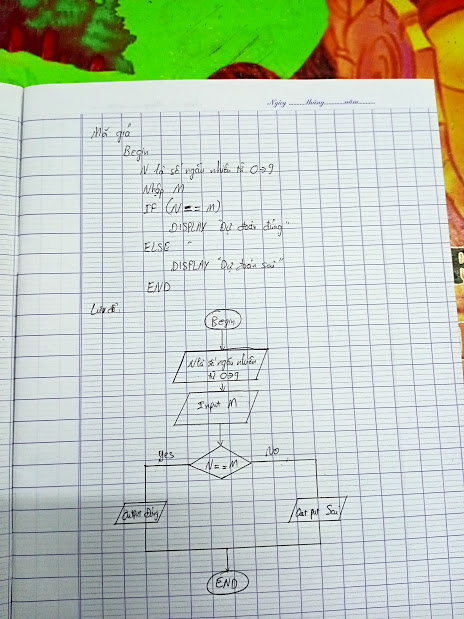 Ngày ........tháng.........năm.........
Mã giả
Begin
N là số ngẫu nhiên từ 0→9
Nhập M
IF (N == M)
DISPLAY "Dự đoán đúng"
ELSE
DISPLAY "Dự đoán sai"
END
Lưu đồ
Begin
N là số ngẫu nhiên
từ 0→9
Input M
Yes
N == M
No
Output Đúng
Out put Sai
END